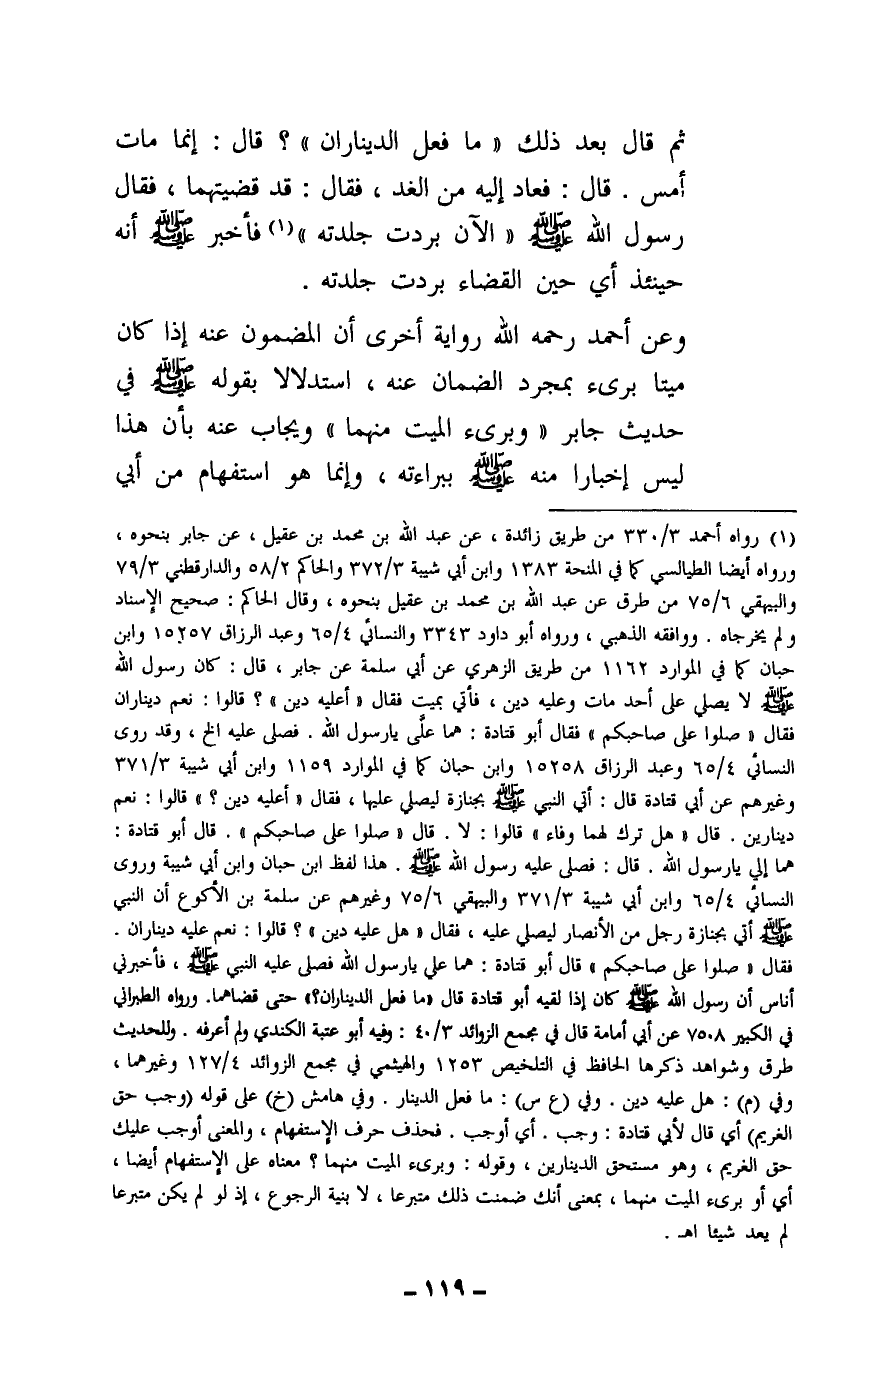 ثم قال بعد ذلك « ما فعل الديناران » ؟ قال : إنما مات
أمس . قال : فعاد إليه من الغد ، فقال : قد قضيتهما ، فقال
رسول الله ﷺ « الآن بردت جلدته »(١) فأخبر ﷺ أنه
حينئذ أي حين القضاء بردت جلدته .
وعن أحمد رحمه الله رواية أخرى أن المضمون عنه إذا كان
ميتا برىء بمجرد الضمان عنه ، استدلالا بقوله ﷺ في
حديث جابر « وبرىء الميت منهما » ويجاب عنه بأن هذا
ليس إخبارا منه ﷺ ببراءته ، وإنما هو استفهام من أبي
(١) رواه أحمد ٣٣٠/٣ من طريق زائدة ، عن عبد الله بن محمد بن عقيل ، عن جابر بنحوه ،
ورواه أيضا الطيالسي كما في المنحة ١٣٨٣ وابن أبي شيبة ٣٧٢/٣ والحاكم ٥٨/٢ والدارقطني ٧٩/٣
والبيهقي ٧٥/٦ من طرق عن عبد الله بن محمد بن عقيل بنحوه ، وقال الحاكم : صحيح الإسناد
ولم يخرجاه . ووافقه الذهبي ، ورواه أبو داود ٣٣٤٣ والنسائي ٦٥/٤ وعبد الرزاق ١٥٢٥٧ وابن
حبان كما في الموارد ١١٦٢ من طريق الزهري عن أبي سلمة عن جابر ، قال : كان رسول الله
ﷺ لا يصلي على أحد مات وعليه دين ، فأتي بميت فقال « أعليه دين » ؟ قالوا : نعم ديناران
فقال « صلوا على صاحبكم » فقال أبو قتادة : هما علَّى يارسول الله . فصلى عليه الخ ، وقد روى
النسائي ٦٥/٤ وعبد الرزاق ١٥٢٥٨ وابن حبان كما في الموارد ١١٥٩ وابن أبي شيبة ٣٧١/٣
وغيرهم عن أبي قتادة قال : أتي النبي ﷺ بجنازة ليصلي عليها ، فقال « أعليه دين ؟ » قالوا : نعم
دينارين . قال « هل ترك لهما وفاء » قالوا : لا . قال « صلوا على صاحبكم » . قال أبو قتادة :
هما إلي يارسول الله . قال : فصلى عليه رسول الله ﷺ . هذا لفظ ابن حبان وابن أبي شيبة وروى
النسائي ٦٥/٤ وابن أبي شيبة ٣٧١/٣ والبيهقي ٧٥/٦ وغيرهم عن سلمة بن الأكوع أن النبي
ﷺ أتي بجنازة رجل من الأنصار ليصلي عليه ، فقال « هل عليه دين » ؟ قالوا : نعم عليه ديناران .
فقال « صلوا على صاحبكم » قال أبو قتادة : هما علي يارسول الله فصلى عليه النبي ﷺ ، فأخبرني
أناس أن رسول الله ﷺ كان إذا لقيه أبو قتادة قال «ما فعل الديناران؟» حتى قضاهما. ورواه الطبراني
في الكبير ٧٥٠٨ عن أبي أمامة قال في مجمع الزوائد ٤٠/٣ : وفيه أبو عتبة الكندي ولم أعرفه . وللحديث
طرق وشواهد ذكرها الحافظ في التلخيص ١٢٥٣ والهيثمي في مجمع الزوائد ١٢٧/٤ وغيرهما ،
وفي (م) : هل عليه دين . وفي (ع س) : ما فعل الدينار . وفي هامش (خ) على قوله (وجب حق
الغريم) أي قال لأبي قتادة : وجب . أي أوجب . فحذف حرف الإستفهام ، والمعنى أوجب عليك
حق الغريم ، وهو مستحق الدينارين ، وقوله : وبرىء الميت منهما ؟ معناه على الإستفهام أيضا ،
أي أو برىء الميت منهما ، بمعنى أنك ضمنت ذلك متبرعا ، لا بنية الرجوع ، إذ لو لم يكن متبرعا
لم يعد شيئا اهـ .
- ١١٩ -